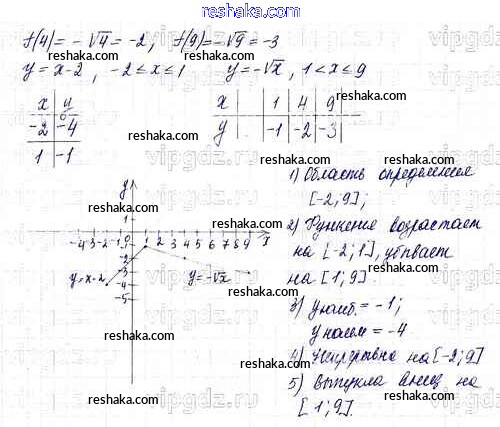 reshaka.com
f(4) = -√4 = -2, f(9) = -√9 = -3
y = x-2, -2 ≤ x ≤ 1 y = -√x, 1 < x ≤ 9
x y
-2 -4
1 -1
x 1 4 9
y -1 -2 -3
reshaka.com
reshaka.com
reshaka.com
1) Область определения
[-2; 9];
2) Функция возрастает
на [-2; 1], убывает
на [1; 9].
3) y наиб. = -1;
y наим = -4
4) Непрерывна на [-2; 9]
5) Выпукла вниз на
[1; 9].
y
1
-4 -3 -2 -1 0 1 2 3 4 5 6 7 8 9 x
-2
-3
-4
-5
y = x-2
y = -√x
reshaka.com
reshaka.com
reshaka.com
reshaka.com
reshaka.com
reshaka.com
reshaka.com
vipgdz.ru
vipgdz.ru
vipgdz.ru
vipgdz.ru